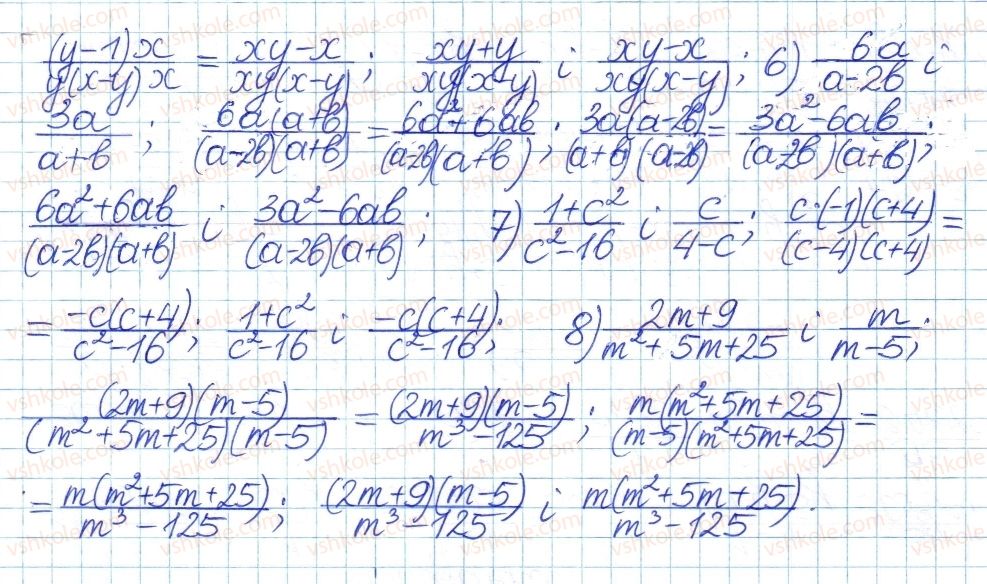 (y-1)x/y(x-y)x = xy-x/xy(x-y); xy+y/xy(x-y) і xy-x/xy(x-y); 6) 6a/a-2b і
3a/a+b; 6a(a+b)/(a-2b)(a+b) = 6a²+6ab/(a-2b)(a+b); 3a(a-2b)/(a+b)(a-2b) = 3a²-6ab/(a-2b)(a+b);
6a²+6ab/(a-2b)(a+b) і 3a²-6ab/(a-2b)(a+b); 7) 1+c²/c²-16 і c/4-c; c·(-1)(c+4)/(c-4)(c+4) =
= -c(c+4)/c²-16; 1+c²/c²-16 і -c(c+4)/c²-16; 8) 2m+9/m²+5m+25 і m/m-5;
(2m+9)(m-5)/(m²+5m+25)(m-5) = (2m+9)(m-5)/m³-125; m(m²+5m+25)/(m-5)(m²+5m+25) =
= m(m²+5m+25)/m³-125; (2m+9)(m-5)/m³-125 і m(m²+5m+25)/m³-125.